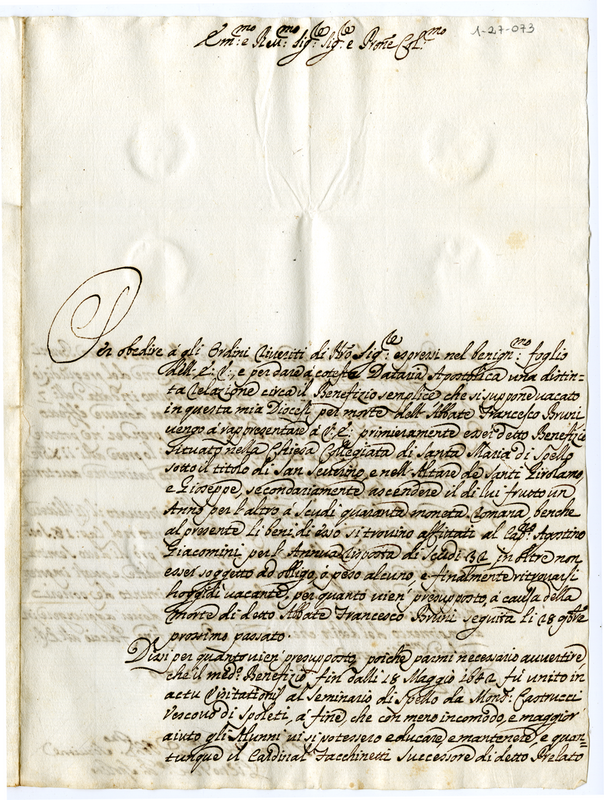 1-27-073
Em.mo e Rev.mo Sig.re Sig.re e Prone Col.mo
Per obedire à gli Ordini riveriti di Nro Sig.re espressi nel benign.mo foglio
dell'E: V:, e per dare à cotesta Dataria Apostolica una distin-
ta relazione circa il Benefizio semplice che si suppone vacato
in questa mia Diocesi per morte dell'Abbate Francesco Bruni
vengo à rappresentare à V: E: primieramente esser detto Benefizio
situato nella Chiesa Collegiata di Santa Maria di Spello
sotto il titolo di San Severino, e nell'Altare de Santi Girolamo,
e Gioseppe, secondariamente ascendere il di lui frutto un
Anno per l'altro à scudi quaranta moneta Romana, benche
al presente li beni di esso si trovino affittati al Cap.o Agostino
Giacomini per l'Annua risposta di scudi 32. In oltre non
esser soggetto ad obligo, ò peso alcuno, e finalmente ritrovarsi
hoggidì vacante, per quanto vien' presupposto, à causa della
morte di detto Abbate Francesco Bruni seguita li 28 9bre
prossimo passato.
Dissi per quanto vien' presupposto, poiche parmi necessario avvertire,
che il med.o Benefizio fin dalli 18 Maggio fu unito in
actu Visitationis al seminario di Spello da Mons.r Castrucci
Vescovo di Spoleti, a fine, che con meno incomodo, e maggior
aiuto gli Alunni vi si potessero educare, e mantenere, e quan-
tunque il Cardinal Facchinetti successore di detto Prelato